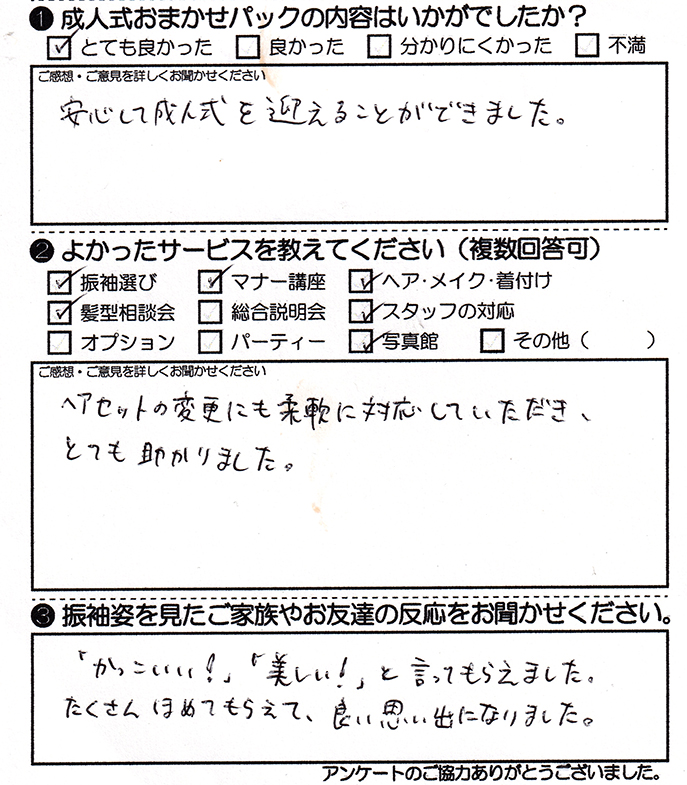 ❶ 成人式おまかせパックの内容はいかがでしたか？
☑ とても良かった ☐ 良かった ☐ 分かりにくかった ☐ 不満
ご感想・ご意見を詳しくお聞かせください
安心して成人式を迎えることができました。
❷ よかったサービスを教えてください（複数回答可）
☑ 振袖選び ☑ マナー講座 ☑ ヘア・メイク・着付け
☑ 髪型相談会 ☐ 総合説明会 ☑ スタッフの対応
☐ オプション ☐ パーティー ☑ 写真館 ☐ その他（　　）
ご感想・ご意見を詳しくお聞かせください
ヘアセットの変更にも柔軟に対応していただき、
とても助かりました。
❸ 振袖姿を見たご家族やお友達の反応をお聞かせください。
「かっこいい！」「美しい！」と言ってもらえました。
たくさんほめてもらえて、良い思い出になりました。
アンケートのご協力ありがとうございました。